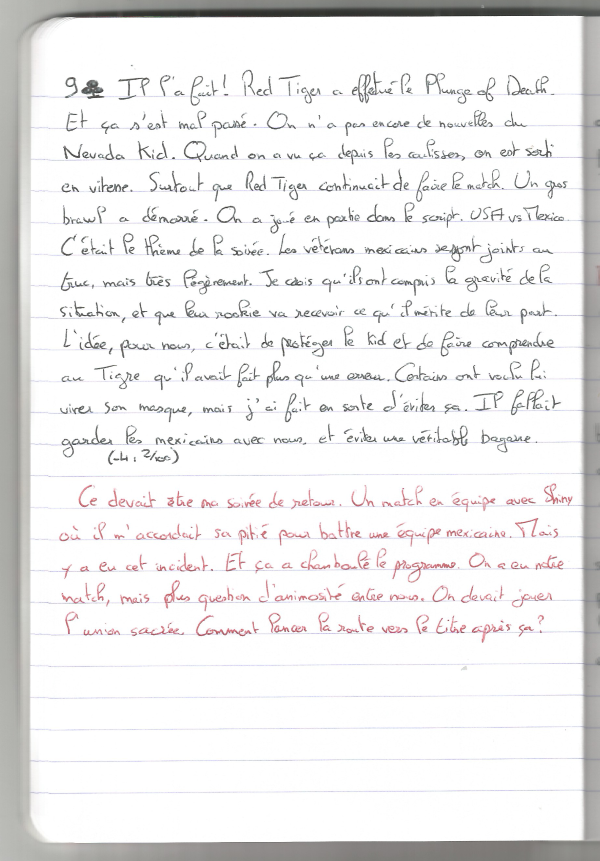 9♣ Il l'a fait! Red Tiger a effectué le Plunge of Death.
Et ça s'est mal passé. On n'a pas encore de nouvelles du
Nevada Kid. Quand on a vu ça depuis les coulisses, on est sorti
en vitesse. Surtout que Red Tiger continuait de faire le match. Un gros
brawl a démarré. On a joué en partie dans le script. USA vs Mexico
C'était le thème de la soirée. Les vétérans mexicains se sont joints au
truc, mais très légèrement. Je crois qu'ils ont compris la gravité de la
situation, et que leur rookie va recevoir ce qu'il mérite de leur part.
L'idée, pour nous, c'était de protéger le Kid et de faire comprendre
au Tigre qu'il avait fait plus qu'une erreur. Certains ont voulu lui
virer son masque, mais j'ai fait en sorte d'éviter ça. Il fallait
garder les mexicains avec nous, et éviter une véritable bagarre.
Ce devait être ma soirée de retour. Un match en équipe avec Shiny
où il m'accordait sa pitié pour battre une équipe mexicaine. Mais
y a eu cet incident. Et ça a chamboulé le programme. On a eu notre
match, mais plus question d'animosité entre nous. On devait jouer
l'union sacrée. Comment lancer la route vers le titre après ça?